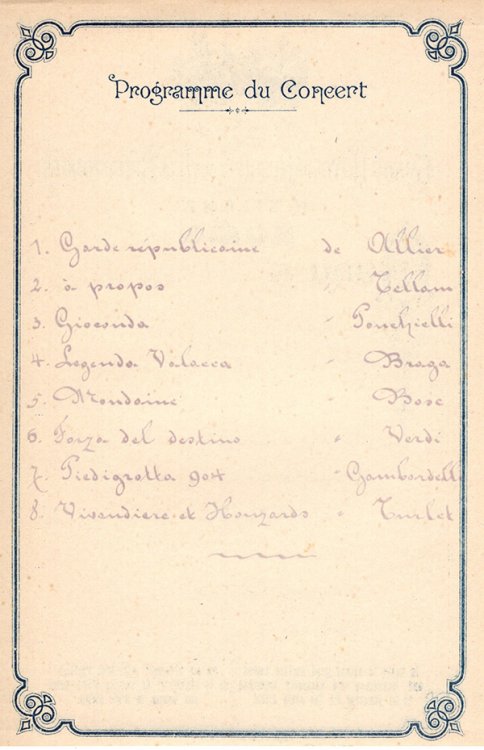 Programme du Concert
1. Garde républicaine de Allier
2. à propos " Tellam
3. Gioconda " Ponchielli
4. Legenda Valacca " Braga
5. Mondaine " Bosc
6. Forza del destino " Verdi
7. Piedigrotta 904 " Gambardelli
8. Vivandiere et Houzards " Turlet